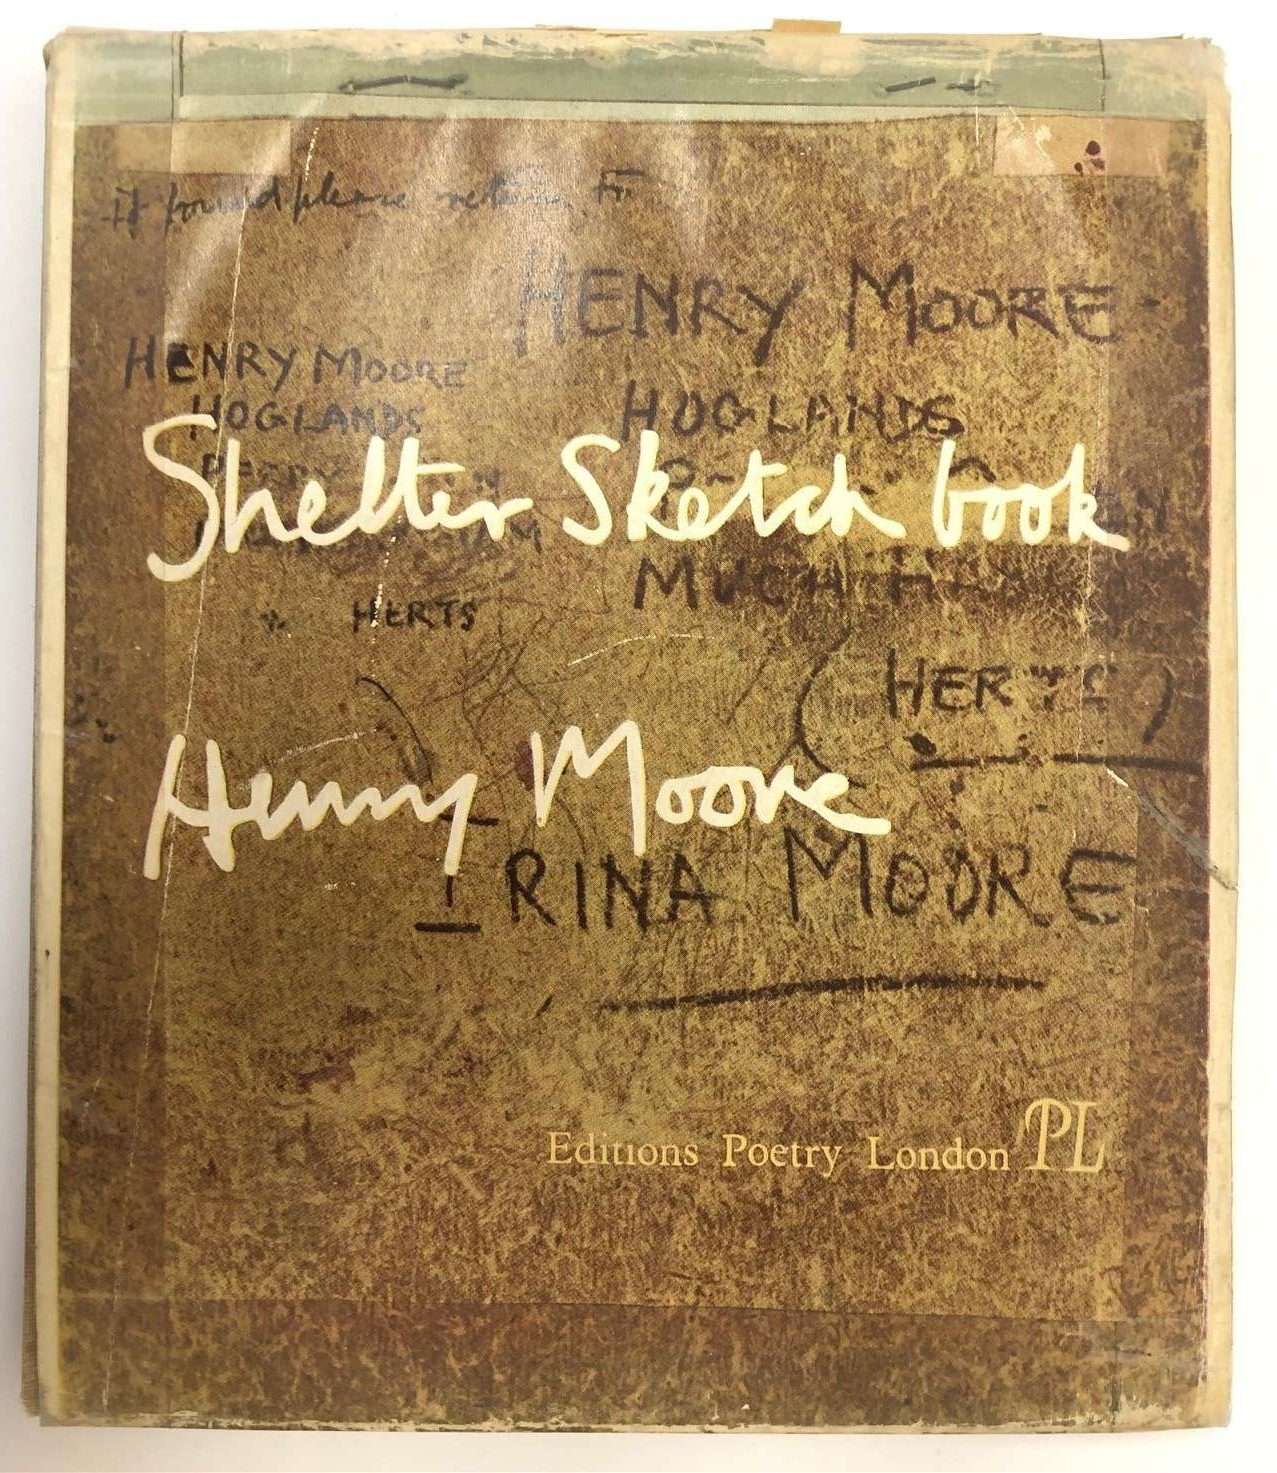 if found please return to
HENRY MOORE
HOGLANDS
MUCH
(HERTS)
HENRY MOORE
HOGLANDS
HERTS
Shelter Sketch book
Henry Moore
IRINA MOORE
Editions Poetry London PL